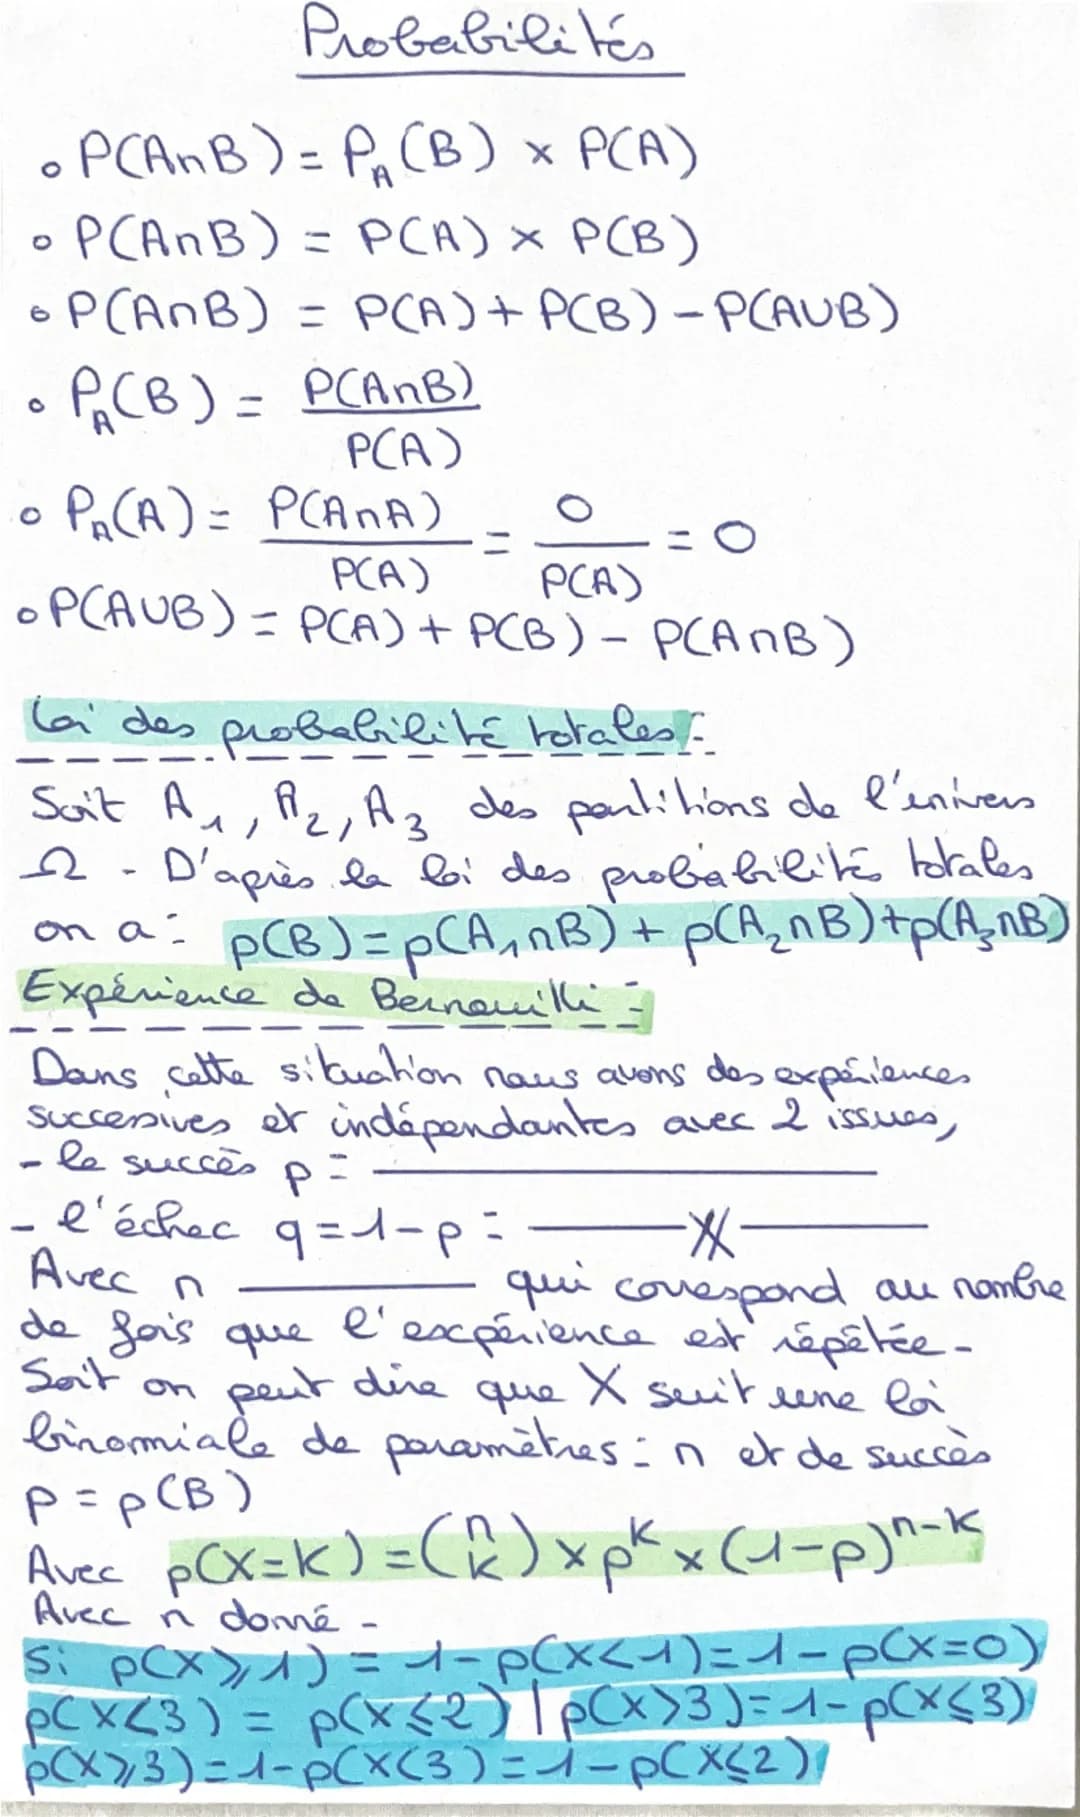 Probabilités
• P(A∩B) = P_A(B) × P(A)
• P(A∩B) = P(A) × P(B)
• P(A∩B) = P(A) + P(B) - P(A∪B)
• P_A(B) = P(A∩B) / P(A)
• P_A(A) = P(A∩A) / P(A) = 0 / P(A) = 0
• P(A∪B) = P(A) + P(B) - P(A∩B)
Loi des probabilité totales :
Soit A₁, A₂, A₃ des partitions de l'univers
Ω. D'après la loi des probabilités totales
on a : p(B) = p(A₁∩B) + p(A₂∩B) + p(A₃∩B)
Expérience de Bernouilli :
Dans cette situation nous avons des expériences
successives et indépendantes avec 2 issues,
- le succès p = ————
- l'échec q = 1-p = ————
Avec n ———— qui correspond au nombre
de fois que l'expérience est répétée.
Soit on peut dire que X suit une loi
binomiale de paramètres : n et de succès
p = p(B)
Avec p(X=k) = (n k) × p^k × (1-p)^(n-k)
Avec n donné.
Si p(X⩾1) = 1-p(X<1) = 1-p(X=0)
p(X<3) = p(X⩽2) | p(X>3) = 1-p(X⩽3)
p(X⩾3) = 1-p(X<3) = 1-p(X⩽2)